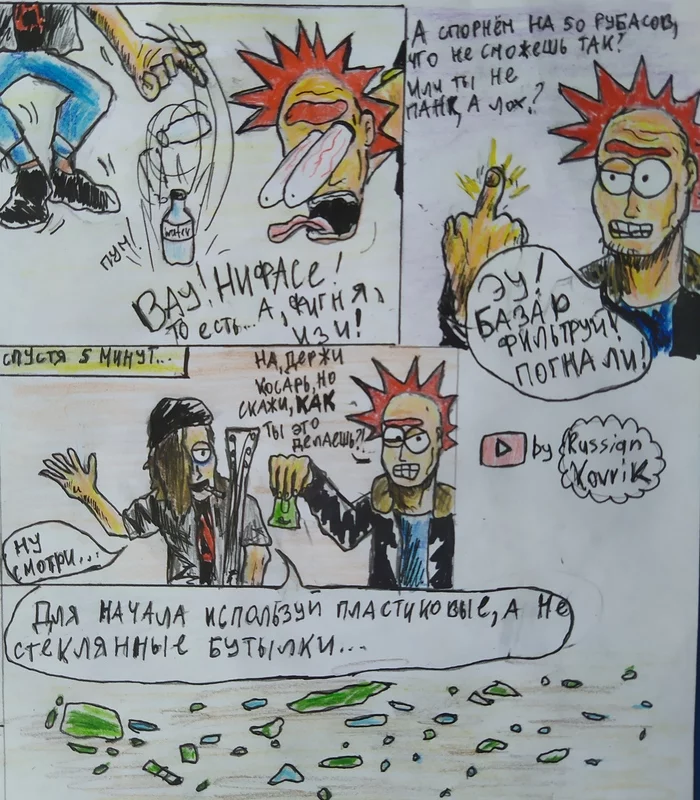 water
ПУМ!
ВАУ! НИФАСЕ!
ТО ЕСТЬ... А, ФИГНЯ,
ИЗИ!
А СПОРНЁМ НА 50 РУБАСОВ,
ЧТО НЕ СМОЖЕШЬ ТАК?
ИЛИ ТЫ НЕ
ПАНК, А ЛОХ?
ЭУ!
БАЗАР
ФИЛЬТРУЙ!
ПОГНАЛИ!
СПУСТЯ 5 МИНУТ...
НА, ДЕРЖИ
КОСАРЬ, НО
СКАЖИ, КАК
ТЫ ЭТО
ДЕЛАЕШЬ?!
НУ
СМОТРИ...
by Russian
Kovrik
ДЛЯ НАЧАЛА ИСПОЛЬЗУЙ ПЛАСТИКОВЫЕ, А НЕ
СТЕКЛЯННЫЕ БУТЫЛКИ...